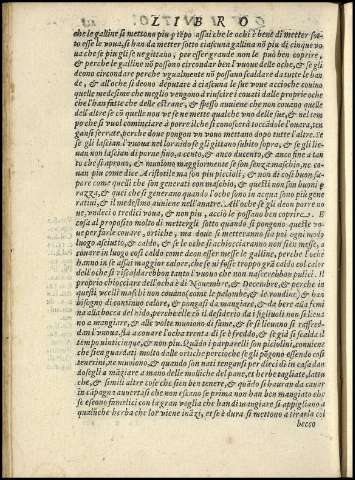 LIBRO
che le galline si mettono piu tẽpo assai che le ochi è bene di metter sot-
to esse le voua, si han da metter sotto ciascuna gallina nõ piu di cinque vo
ua che se piu gli se negittano, per esser grande non le può ben coprire,
& perche le galline nõ possono circondar ben l'vuoue delle oche, & se gli
deono circondare perche vgualmente nõ possono scaldare da tutte le ban
de, & all'oche si deono deputare à ciascuna le sue voue accioche couino
quelle medesime che meglio vengono à riuscire i couati dalle proprie oche
che l'han fatte che delle estrane, & spesso auiene che non couano quelle
dell'altre se cõ quelle non ve se ne mette qualche vno delle sue, & nel tem
po che si vuol cominciare à porre il che si conoscerà toccãdole l'ouata, ten
gansi serrate, perche doue pongon vn vouo mettano dopo tutte l'altre. Se
se gli lascian l'vuoua nel loro nido se gli gittano subito sopra, & se gli le-
uan non lascian di porne fino, a cento, & anco ducento, & anco fine a tan
to che s'aprono, & muoiono maggiormente se son senza maschio, ne co-
uan piu come dice Aristotile ma son piu piccioli, & non di così buon sa-
pore come quelli che son generati con maschio, & questi non son buoni p
razza, & quei che si generano quando l'oche sono in acqua sono piu gene
ratiui, & il medesimo auiene nell'anatre. All'oche se gli deon porre no
ue, vndeci o tredici voua, & non piu, acciò le possano ben coprire. E
cosa al proposito molto di mettergli sotto quando si pongono queste vo-
ue per farle couare, ortiche, ma doue si metteranno sia poi ogni modo
luogo asciutto, & caldo, & se le oche si achiocciaranno non siẽo messe, a
couare in luogo così caldo come deon esser messe le galline, perche l'oche
stanno in se assai maggior calore, che se ui fusse troppo grã caldo col calor
dell'oche si riscaldarebbon tanto l'vuoua che una nascerebbon pulici. Il
proprio chiocciare dell'oca è di Nouembre, & Decembre, & perche in
questi vccelli maschi non couano (come le palombe, & le rondine) & han
bisogno di continuo calore, & pongasi da mangiare, & da bere alla femi
na alla bocca del nido, perche elle cõ il desiderio da i figliuoli non si leua
no a mangiare, & alle volte muoiono di fame, & se si leuano si raffred-
dan l'voua, sta a couare l'oca trenta dì se è freddo, & se già si scalda il
tempo uinticinque, & non piu. Quãdo i paparelli son picciolini, conuiene
che sien guardati molto dalle ortiche perche se gli põgono essendo così
tenerini, ne muoiono, & quando son nati tengansi per dieci dì in casa dan
dosegli a mãgiare a mano delle molliche del pane, et herbe tagliate, lattu
che, & simili altre cose che sien ben tenere, & quãdo si hauran da cauar
in cãpagna auertasi che non escano se prima non han ben mangiato che
se escono famelici con la gran voglia che han di mangiare si appigliano a
qualũche herba che lor viene inãzi, et se è dura si mettono a tirarla col
becco